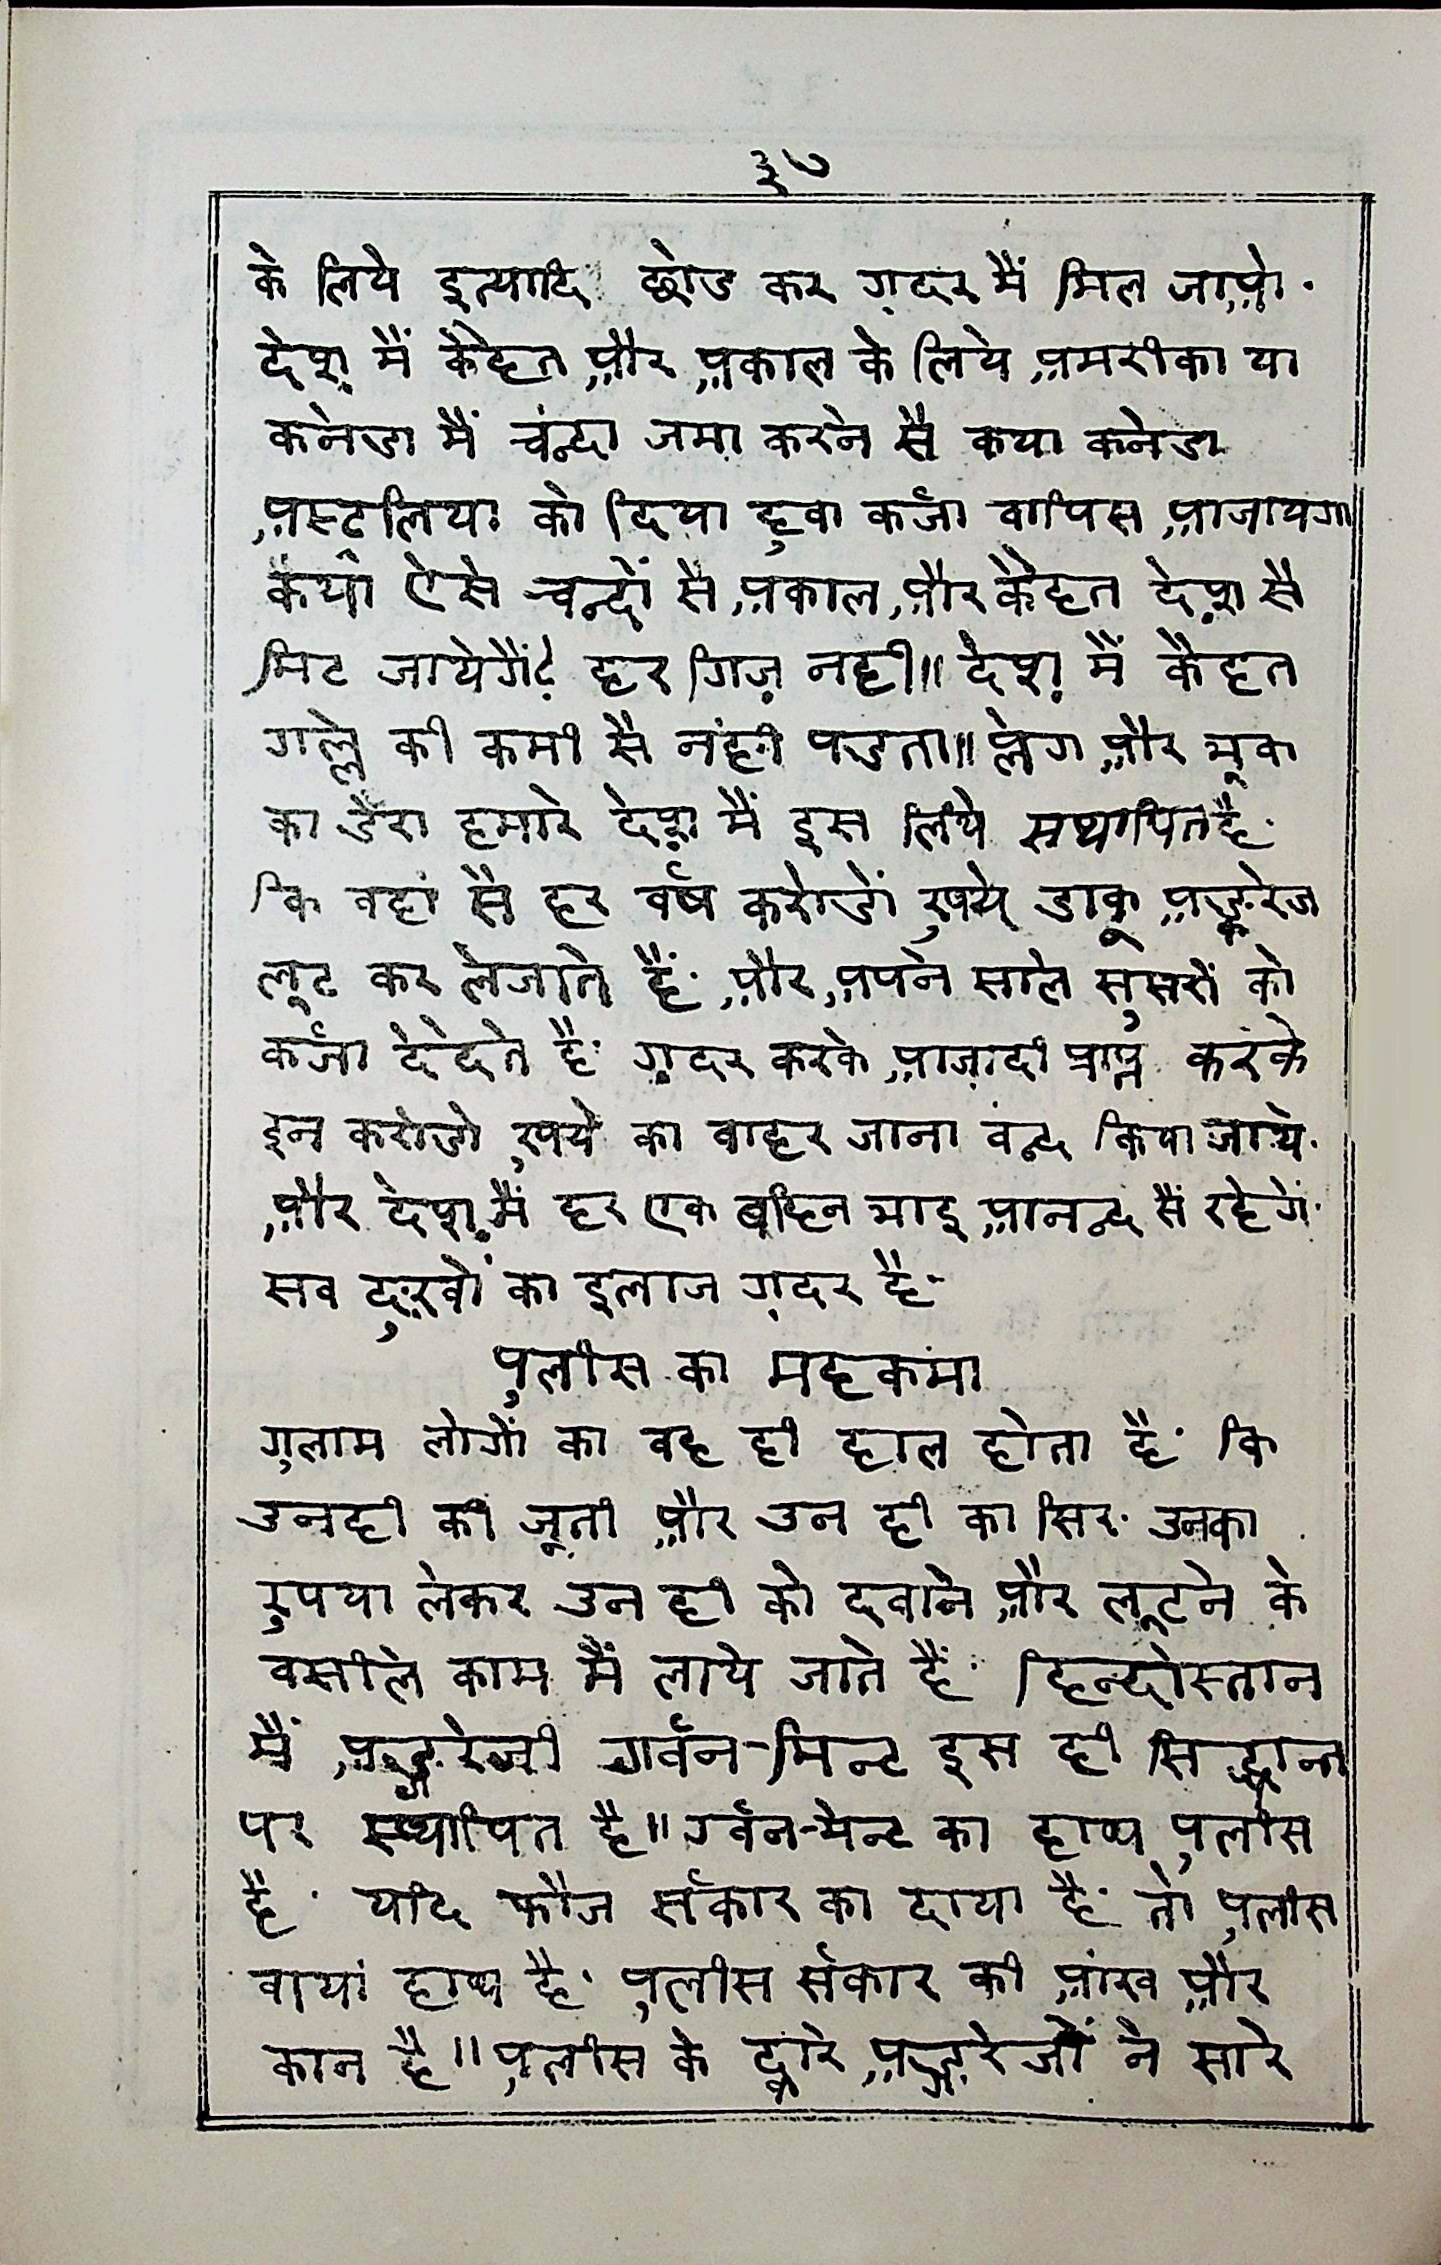 ३७
के लिये इत्यादि छोड कर ग़दर मैं मिल जाओ.
देश़ मैं कैहत और अकाल के लिये अमरीका या
कनेडा मैं चंन्दा जमा करने सै कया कनेडा
अस्ट्रलिया को दिया हुवा कर्जा वापिस आजायगा
कया ऐसे चन्दों सै अकाल और कैहत देश़ सै
मिट जायेगैं? हर गिज़ नही॥ देश़ मैं कैहत
गल्ले की कमी सै नंही पडता॥ प्लेग और भूक
का डेरा हमारे देश़ मैं इस लिये सथापित है.
कि वहां सै हर वर्ष करोडों रुपये डाकू अङ्गरेज
लूट कर लेजाते हैं. और अपने साले सुसरों को
कर्जा देदेते है. ग़दर करके आज़ादी प्राप्त करके
इन करोडो रुपये का बाहर जाना वंन्द किया जाये.
और देश़ मैं हर एक बहिन भाइ आनन्द सैं रहेगें.
सव दुःखों का इलाज ग़दर है-
पुलीस का महकमा
गुलाम लोगों का वह ही हाल होता है. कि
उनही की जूती और उन ही का सिर. उनका
रुपया लेकर उन ही को दवाने और लूटने के
वसीले काम मैं लाये जाते हैं. हिन्दोस्तान
मैं अङ्गरेजी गर्वन-मिन्ट इस ही सिद्धान्त
पर स्थापित है॥ गर्वन-मेन्ट का हाथ पुलीस
है. यदि फौज सर्कार का दाया है. तो पुलीस
वायां हाथ है. पुलीस सर्कार की आंख और
कान है॥ पुलीस के द्वारे अङ्गरेजों ने सारे